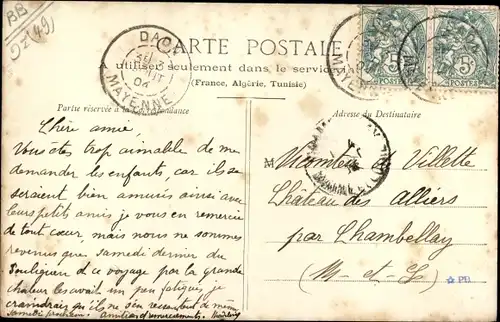 BB
Dz(49)
CARTE POSTALE
A utiliser seulement dans le service in
(France, Algérie, Tunisie)
MAYENNE
04
5c
POSTES
5c
POSTES
Partie réservée à la Correspondance
Adresse du Destinataire
Chère amie,
Vous êtes trop aimable de me
demander les enfants, car ils se
seraient bien amusés ainsi avec
leurs petits amis je vous en remercie
de tout cœur, mais nous ne sommes
revenus que samedi dernier du
Pouliguen et ce voyage par la grande
chaleur les avait un peu fatigués, je
craindrais qu'ils ne s'en ressentent de même
samedi prochain. Amitiés et remerciements.
M Vicomtesse de Villette
Château des Alliers
par Chambellay
(M-et-L)
PB